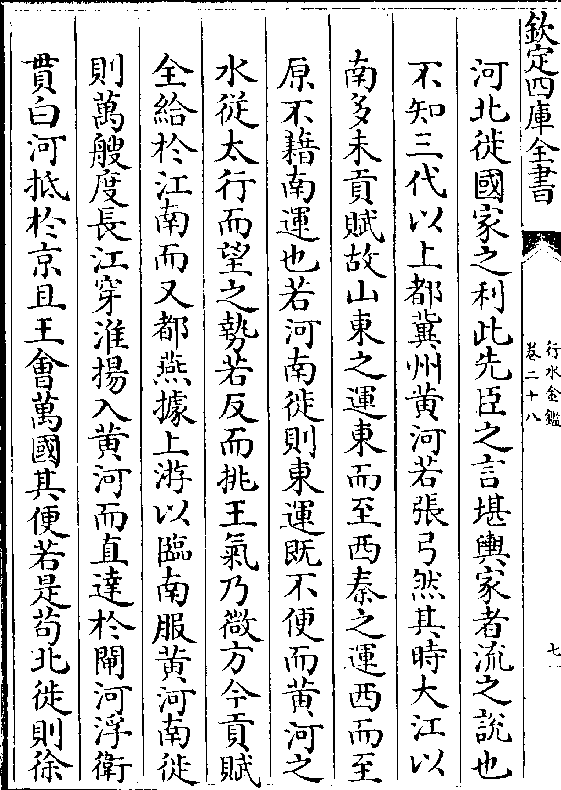 欽定四庫全書
行水金鑑
卷二十八
七
河北徙國家之利此先臣之言堪輿家者流之說也
不知三代以上都冀州黄河若張弓然其時大江以
南多未貢賦故山東之運東而至西秦之運西而至
原不藉南運也若河南徙則東運既不便而黄河之
水従太行而望之勢若反而挑王氣乃微方今貢賦
全給於江南而又都燕據上游以臨南服黄河南徙
則萬艘度長江穿淮揚入黄河而直達於閘河浮衛
貫白河抵於京且王會萬國其便若是苟北徙則徐